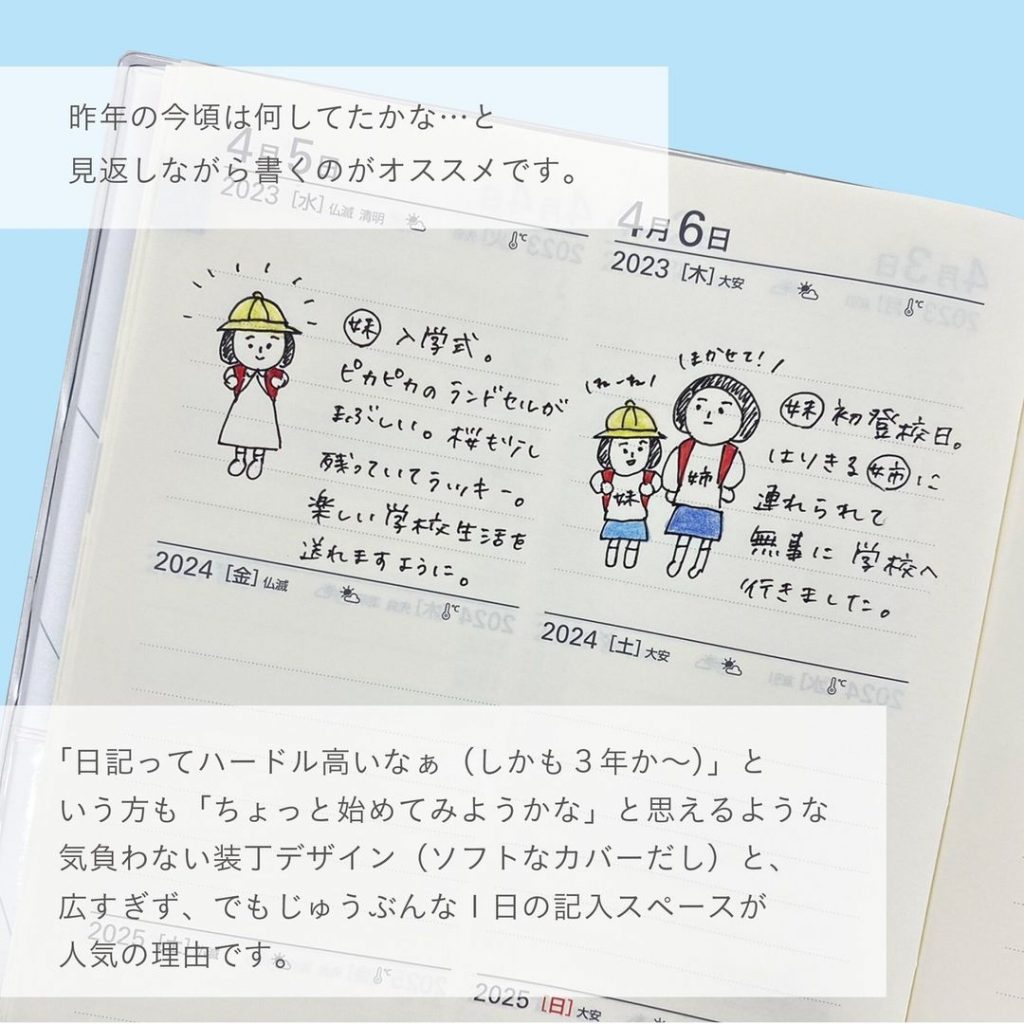 昨年の今頃は何してたかな…と
見返しながら書くのがオススメです。
4月5日
2023 [水] 仏滅 清明
℃
妹 入学式。
ピカピカの ランドセルが
まぶしい。桜も少し
残っていてラッキー。
楽しい学校生活を
送れますように。
2024 [金] 仏滅
℃
4月6日
2023 [木] 大安
℃
ねーね!
まかせて!
妹
姉
妹 初登校日。
はりきる 姉 に
連れられて
無事に 学校へ
行きました。
2024 [土] 大安
℃
「日記ってハードル高いなぁ（しかも３年か〜）」と
いう方も「ちょっと始めてみようかな」と思えるような
気負わない装丁デザイン（ソフトなカバーだし）と、
広すぎず、でもじゅうぶんな１日の記入スペースが
人気の理由です。
2025 [土]
℃
2025 [日] 大安